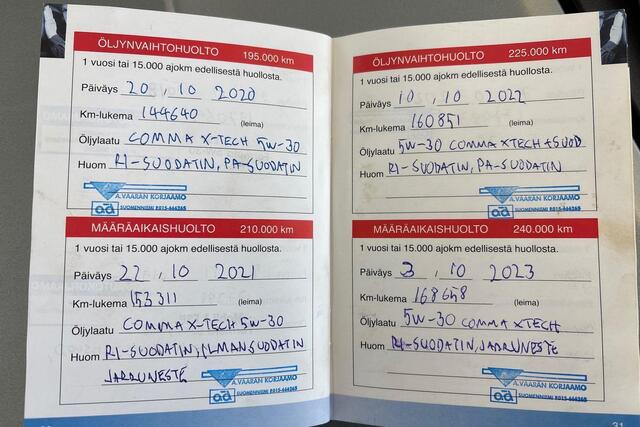 ÖLJYNVAIHTOHUOLTO 195.000 km
1 vuosi tai 15.000 ajokm edellisestä huollosta.
Päiväys 20 . 10 2020
Km-lukema 144640 (leima)
Öljylaatu COMMA X-TECH 5W-30
Huom RI-SUODATIN, PA-SUODATIN
A.VAARAN KORJAAMO
ad SUOMENNIEMI P.015-444265
MÄÄRÄAIKAISHUOLTO 210.000 km
1 vuosi tai 15.000 ajokm edellisestä huollosta.
Päiväys 22 . 10 2021
Km-lukema 153311 (leima)
Öljylaatu COMMA X-TECH 5W-30
Huom RI-SUODATIN, ILMANSUODATIN
JARRUNESTE
A.VAARAN KORJAAMO
ad SUOMENNIEMI P.015-444265
ÖLJYNVAIHTOHUOLTO 225.000 km
1 vuosi tai 15.000 ajokm edellisestä huollosta.
Päiväys 10 . 10 2022
Km-lukema 160851 (leima)
Öljylaatu 5W-30 COMMA XTECH +SUOD
Huom RI-SUODATIN, PA-SUODATIN
A.VAARAN KORJAAMO
ad SUOMENNIEMI P.015-444265
MÄÄRÄAIKAISHUOLTO 240.000 km
1 vuosi tai 15.000 ajokm edellisestä huollosta.
Päiväys 3 . 10 2023
Km-lukema 168658 (leima)
Öljylaatu 5W-30 COMMA XTECH
Huom RI-SUODATIN, JARRUNESTE
A.VAARAN KORJAAMO
ad SUOMENNIEMI P.015-444265